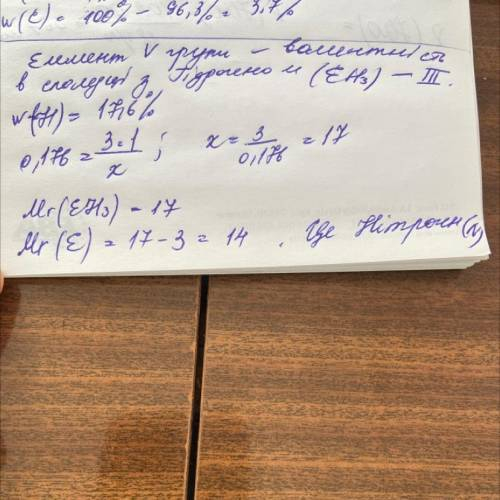 w(E) = 100% - 96,3% = 3,7%
Елемент V групи - валентність
в сполуці з Гідрогеном (EH₃) - III.
w(H) = 17,6%
0,176 = 3·1/x ; x = 3/0,176 = 17
Mr(EH₃) = 17
Mr(E) = 17 - 3 = 14 . Це Нітроген (N)